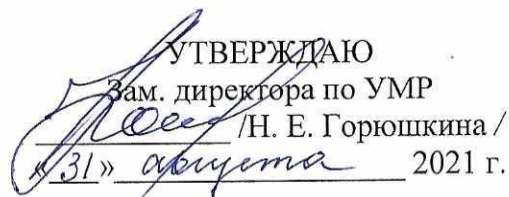 УТВЕРЖДАЮ
Зам. директора по УМР
/Н. Е. Горюшкина /
«31» августа 2021 г.